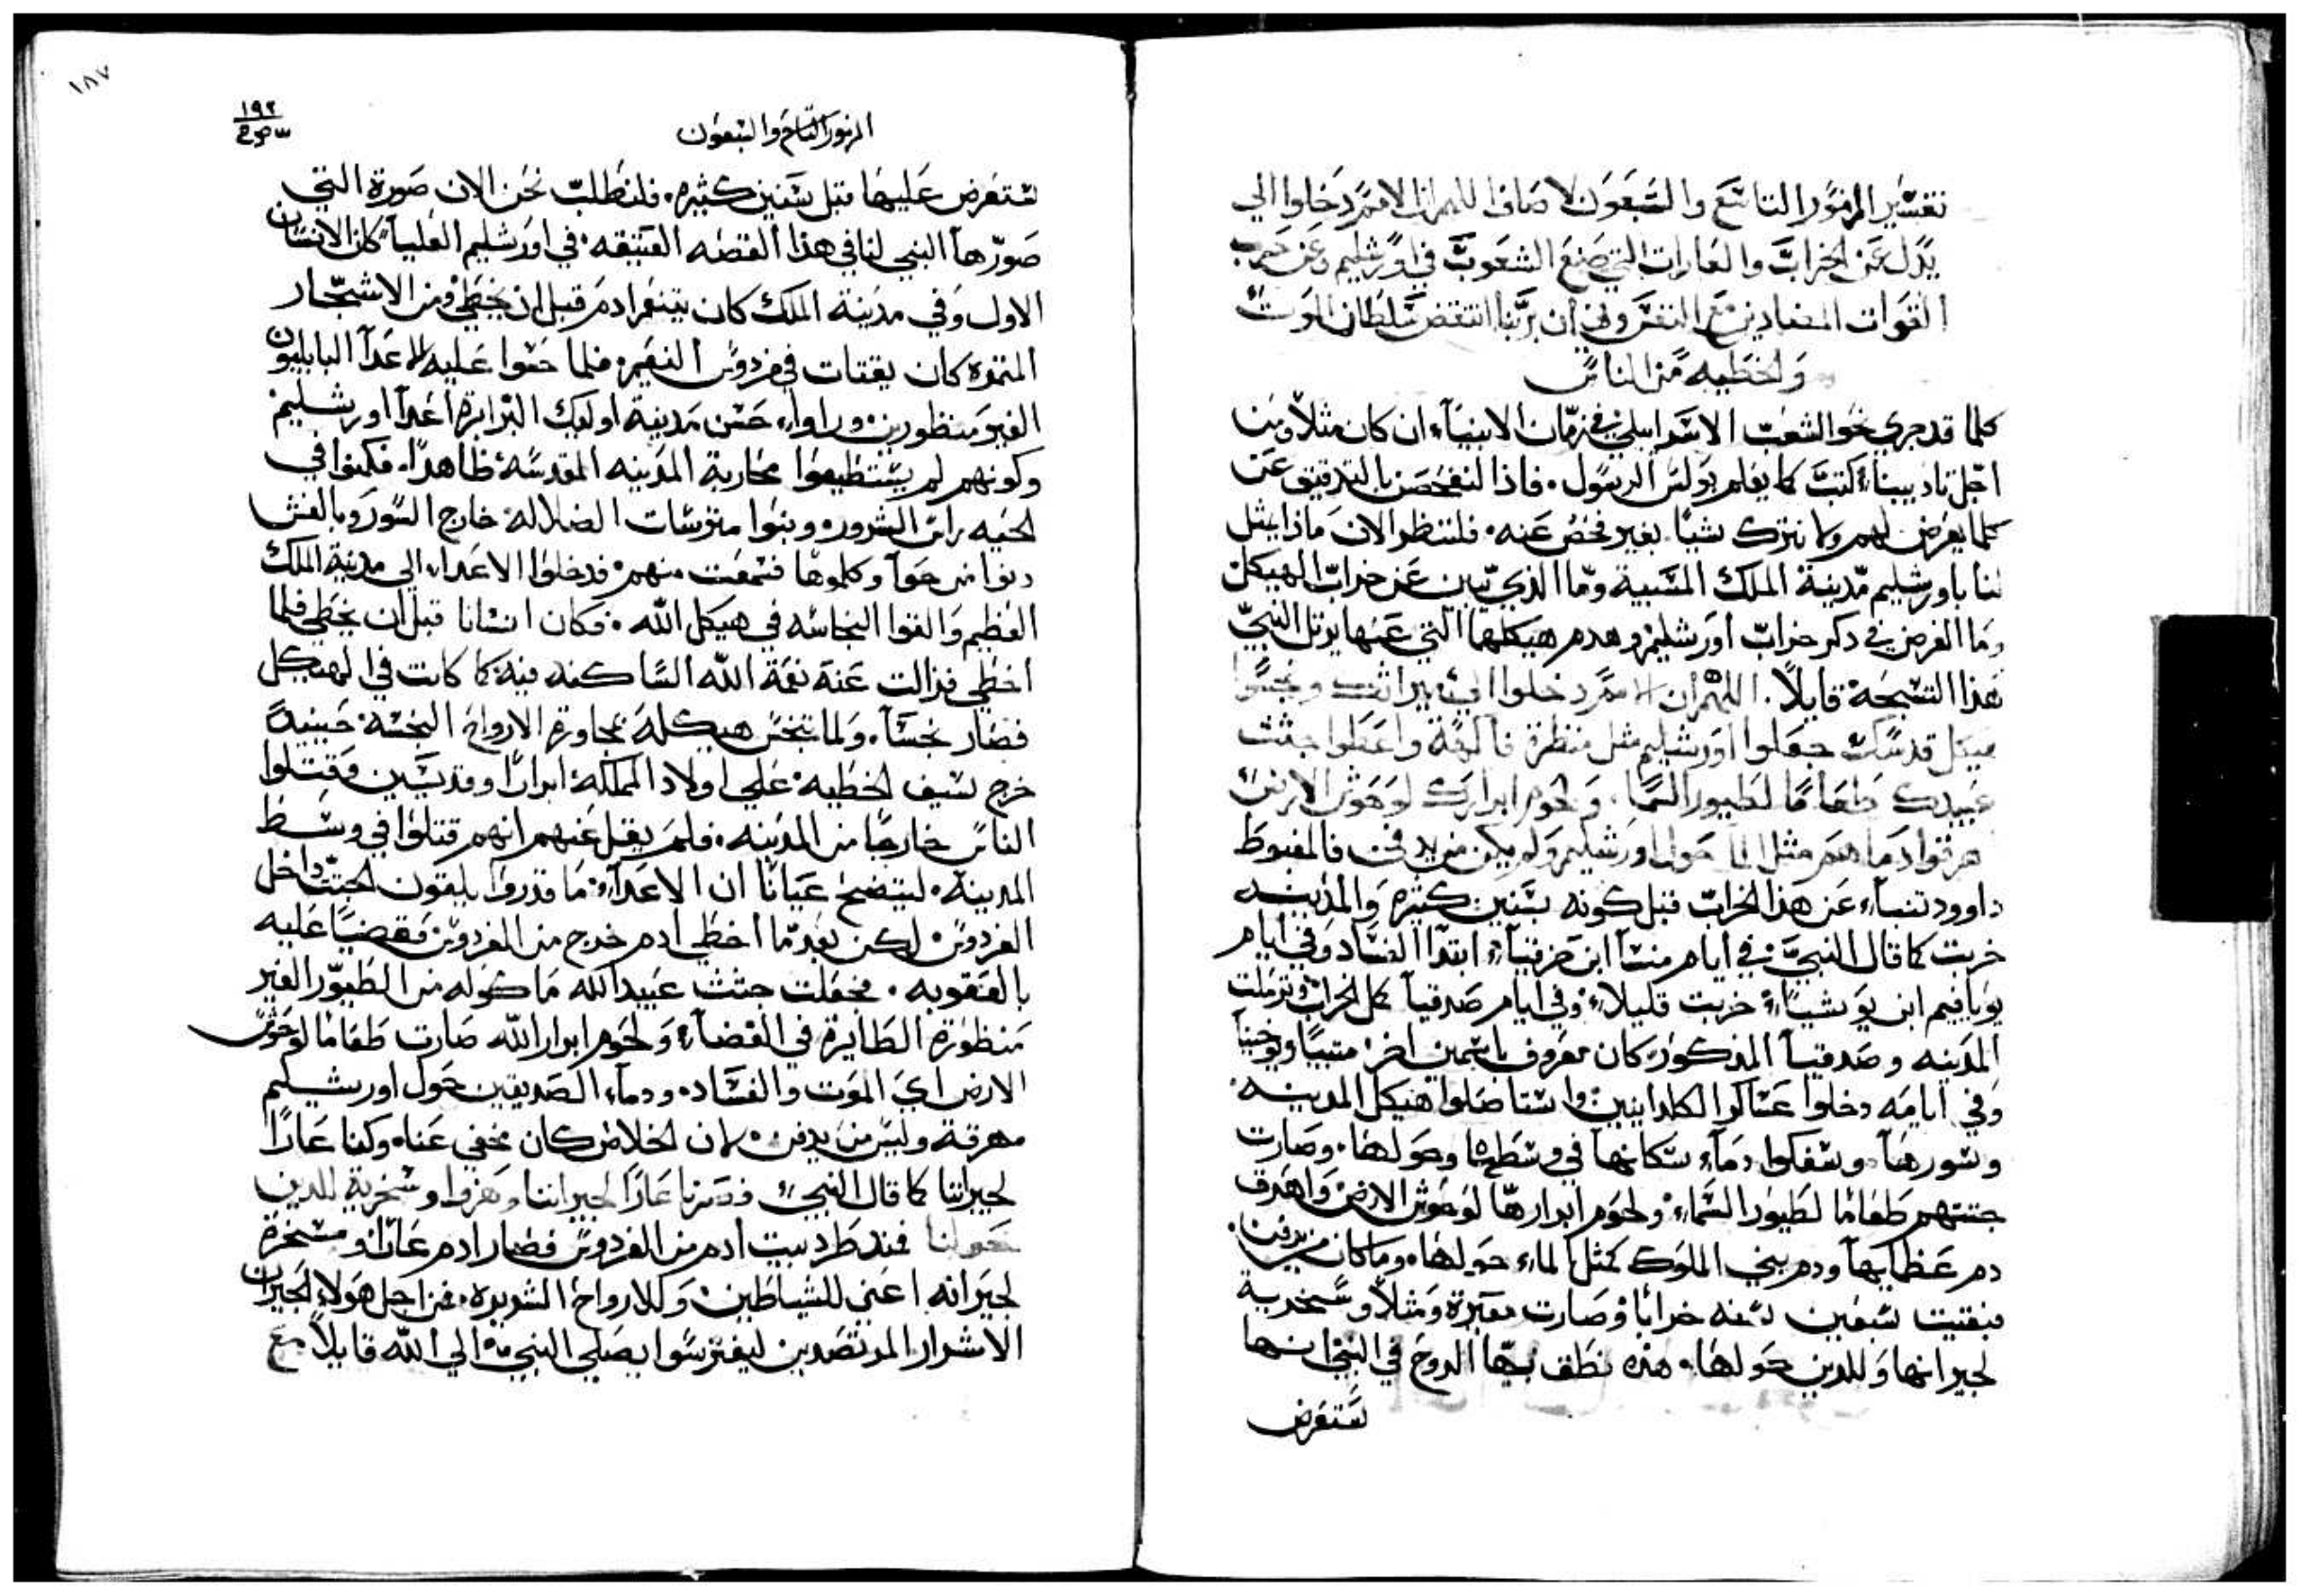 تفسير المزمور التاسع والسبعون لاصاف اللهم ان الامم دخلوا الي
يدل عن الخراب والغارات التي صنع الشعوب في اورشليم وعن حرب
القوات المضادين مع النفس وفي ان ربنا انتقض سلطان الموت
والخطيه من الناس
كلما قد جري نحو الشعب الاسراييلي في زمان الانبياء ان كان مثلاً ومن
اجل تاديبنا كتب كما يعلم بولس الرسول. فاذا لنفحصن بالتدقيق عن
كلما يعرض لهم ولا نترك شيا بغير فحص عنه. فلننظر الان ماذا يمثل
لنا باورشليم مدينة الملك المسبية وما الذي يبين عن خراب الهيكل
وما الغرض في ذكر خراب اورشليم وهدم هيكلها التي عنها يرتل النبي
هذا التسبحة قايلاً. اللهم ان الامم دخلوا الي ميراثك ونجسوا
هيكل قدسك جعلوا اورشليم مثل منظرة فاكهة واعطوا جثث
عبيدك طعامًا لطيور السما. ولحوم ابرارك لوحوش الارض
هرقوا دماهم مثل الما حول اورشليم ولم يكن من يدفن فالمغبوط
داوود تنباء عن هذا الخراب قبل كونه بسنين كثيرة والمدينه
خربت كما قال النبي في ايام منسا ابن حزقيا ابتدا الفساد وفي ايام
يوياقيم ابن يوشيا خربت قليلا وفي ايام صدقيا كمل الخراب وترملت
المدينه وصدقيا المذكور كان معروف باسمين اخر متنيا ويوحنيا
وفي ايامه دخلوا عساكر الكلدانيين واستاصلوا هيكل المدينه
وسورها وسفكوا دماء سكانها في وسطها وحولها. وصارت
جثتهم طعامًا لطيور السماء ولحوم ابرارها لوحوش الارض واهرق
دم عظمايها ودم بني الملوك كمثل الماء حولها. وما كان من يدفن.
فبقيت سبعين سنه خرابًا وصارت معيرة ومثلاً وسخرية
لجيرانها وللذين حولها. هذه نطق بها الروح في النبي انها
ستعرض
١٨٧
١٩٢
المزمور التاسع والسبعون
ستعرض عليها قبل سنين كثيره. فلنطلب نحن الان صورة التي
صورها النبي لنا في هذا القصه العتيقه في اورشليم العليا كان الانسان
الاول وفي مدينة الملك كان يتنعم ادم قبل ان يخطي ومن الاشجار
المثمره كان يقتات في فردوس النعيم فلما حنقوا عليه الاعدا البابليون
الغير منظورين وراوا حسن مدينة اوليك البرابرة اعدا اورشليم
وكونهم لم يستطيعوا محاربة المدينه المقدسه ظاهرًا. فكمنوا في
الحيه راس الشرور وبنوا متوسات الضلاله خارج السور وبالغش
دنوا من حوا وكلموها فسمعت منهم فدخلوا الاعداء الي مدينة الملك
العظيم والقوا النجاسه في هيكل الله. فكان انسانا قبل ان يخطي فلما
اخطي فزالت عنه نعمة الله الساكنه فيه كما كانت في الهيكل
فصار نجسا. ولما تنجس هيكله بمجاورة الارواح النجسه حينيذ
خرج سيف الخطيه علي اولاد المملكه ابرارًا وقديسين وقتلوا
الناس خارجًا من المدينه. فلم يقل عنهم انهم قتلوا في وسط
المدينه. ليتضح عيانًا ان الاعداء ما قدروا يلقون الجثث داخل
الفردوس لكن بعد ما اخطي ادم خرج من الفردوس مقضيًا عليه
بالعقوبه. فجعلت جثث عبيد الله ماكوله من الطيور الغير
منظورة الطايرة في الفضاء ولحوم ابرار الله صارت طعامًا لوحوش
الارض اي الموت والفساد. ودماء الصديقين حول اورشليم
مهرقة وليس من يدفن لان الخلاص كان مخفي عناه وكنا عارًا
لجيراننا كما قال النبي فصرنا عارًا لجيراننا وهزوا وسخرية للذين
حولنا فمنذ طرد بيت ادم من الفردوس فصار ادم عارًا ومسخرة
لجيرانه اعني للشياطين وللارواح الشريره. فمن اجل هولاء الجيران
الاشرار المرتصدين ليفترسوا يصلي النبي الي الله قايلاً